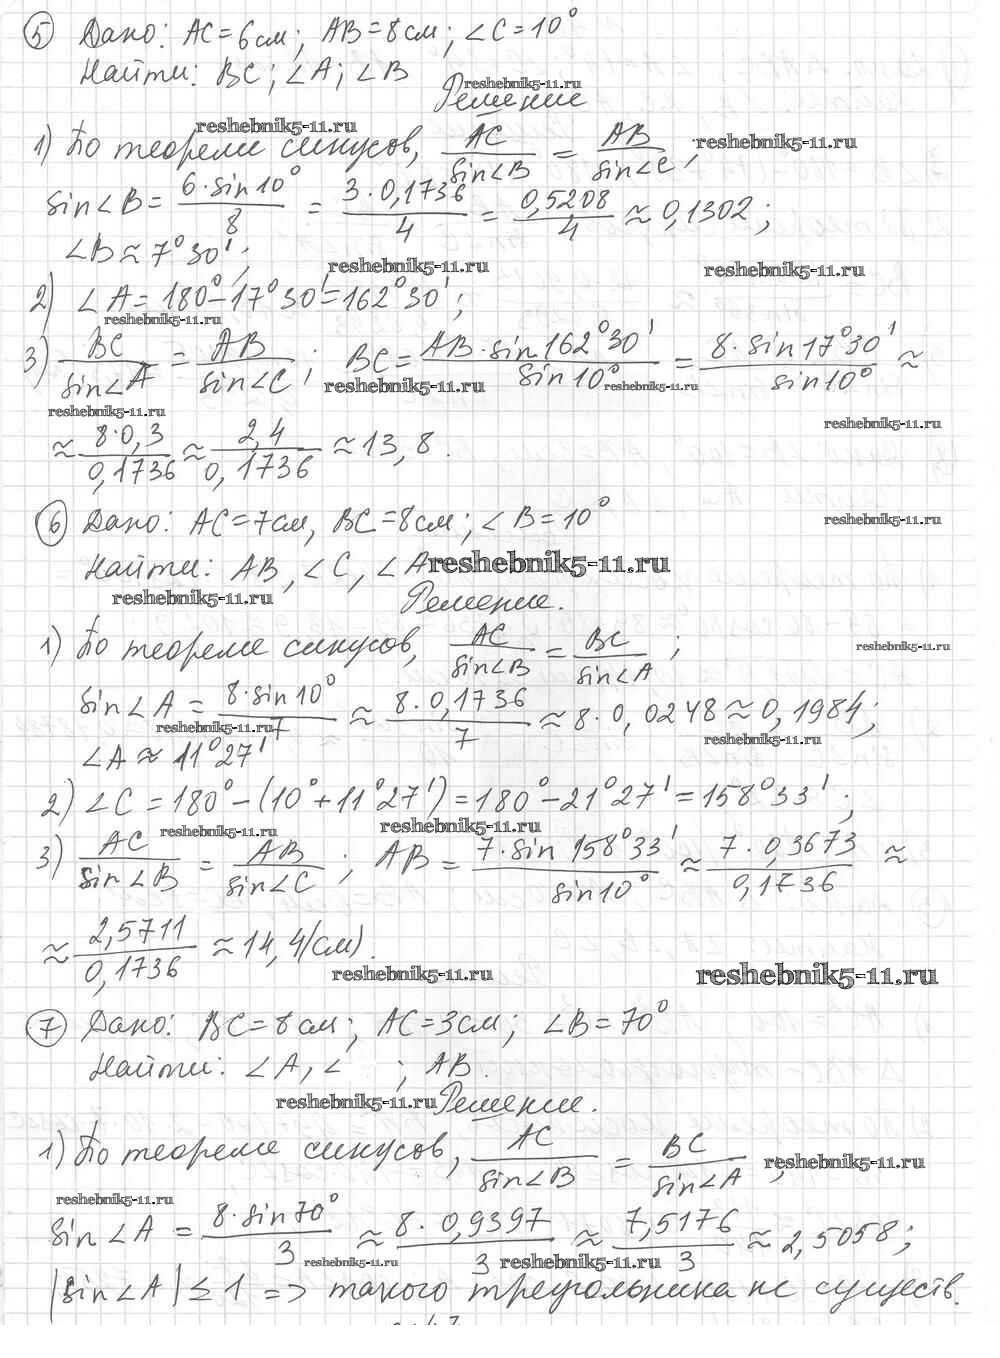 ⑤ Дано: AC=6см; AB=8см; ∠C=10°
Найти: BC; ∠A; ∠B
reshebnik5-11.ru
Решение
reshebnik5-11.ru
1) По теореме синусов, AC/sin∠B = AB/sin∠C, reshebnik5-11.ru
sin∠B = 6·sin10°/8 = 3·0,1736/4 = 0,5208/4 ≈ 0,1302;
∠B ≈ 7°30';
reshebnik5-11.ru reshebnik5-11.ru
2) ∠A = 180°-17°30' = 162°30';
reshebnik5-11.ru
3) BC/sin∠A = AB/sin∠C; BC = AB·sin162°30'/sin10° = 8·sin17°30'/sin10° ≈
reshebnik5-11.ru reshebnik5-11.ru
reshebnik5-11.ru reshebnik5-11.ru
≈ 8·0,3/0,1736 ≈ 2,4/0,1736 ≈ 13,8.
⑥ Дано: AC=7см, BC=8см; ∠B=10°
reshebnik5-11.ru
Найти: AB, ∠C, ∠A reshebnik5-11.ru
reshebnik5-11.ru Решение.
1) По теореме синусов, AC/sin∠B = BC/sin∠A;
reshebnik5-11.ru
sin∠A = 8·sin10°/7 ≈ 8·0,1736/7 ≈ 8·0,0248 ≈ 0,1984;
reshebnik5-11.ru reshebnik5-11.ru
∠A ≈ 11°27'
2) ∠C = 180°-(10°+11°27') = 180°-21°27' = 158°33';
reshebnik5-11.ru reshebnik5-11.ru
3) AC/sin∠B = AB/sin∠C; AB = 7·sin158°33'/sin10° ≈ 7·0,3673/0,1736 ≈
≈ 2,5711/0,1736 ≈ 14,4(см).
reshebnik5-11.ru reshebnik5-11.ru
⑦ Дано: BC=8см; AC=3см; ∠B=70°
Найти: ∠A, ∠ ; AB.
reshebnik5-11.ru Решение.
1) По теореме синусов, AC/sin∠B = BC/sin∠A; reshebnik5-11.ru
reshebnik5-11.ru
sin∠A = 8·sin70°/3 ≈ 8·0,9397/3 ≈ 7,5176/3 ≈ 2,5058;
reshebnik5-11.ru reshebnik5-11.ru
|sin∠A| ≤ 1 => такого треугольника не существ.